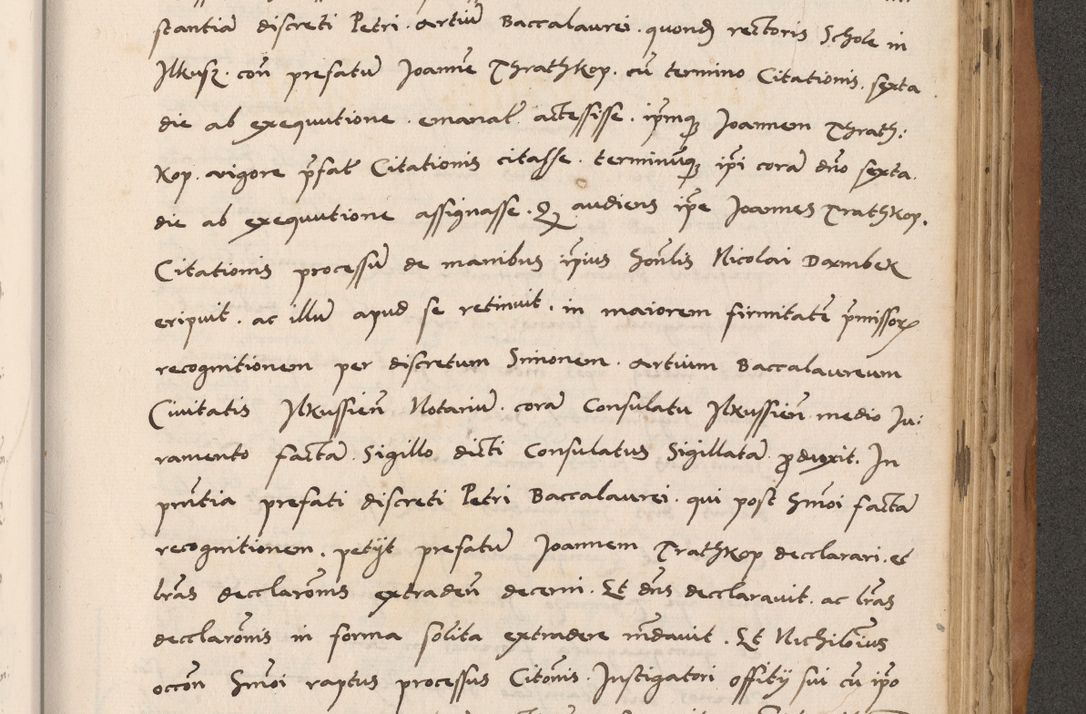 stantiã discreti Petri . Artiũ Baccalaurei . quondã rectoris Schole in
Ilkusz . con̄ prefatũ Joannẽ Thrathkop . cũ termino Citationis . sexta
die ab exequutione . emanat̃ . actessisse . ip̃mq3 Joannem Thrath:
kop . vigore p̃fat̃ Citationis citasse . terminũq3 ip̃i corã dño sexta
die ab exequutione assignasse . Q audiens ip̃e Joannes Trathkop .
Citationis processũ de manibus ip̃ius hon̄lis Nicolai Dambek
eripuit . ac illũ apud se retinuit . in maiorem firmitatẽ p̃missorꝝ
recognitionem per discretum Simonem . Artium Baccalaureum
Civitatis Ilkussien̄ Notariũ . corã Consulatu Ilkussien̄ medio Ju:
ramento factã . Sigillo dicti Consulatus Sigillatã . ꝓduxit . In
pñtia prefati discreti Petri Baccalaurei . qui post hm̃oi factã
recognitionem . petijt prefatũ Joannem Trathkop decclarari . et
lr̃as decclarõnis extraden̄ decerni . Et dñs decclaravit . ac lr̃as
decclarõnis in forma solita extradere mñdavit . Et Nichilõius
occõn hm̃oi raptus processus Citõnis . Instigatori offitij sui cũ ip̃o